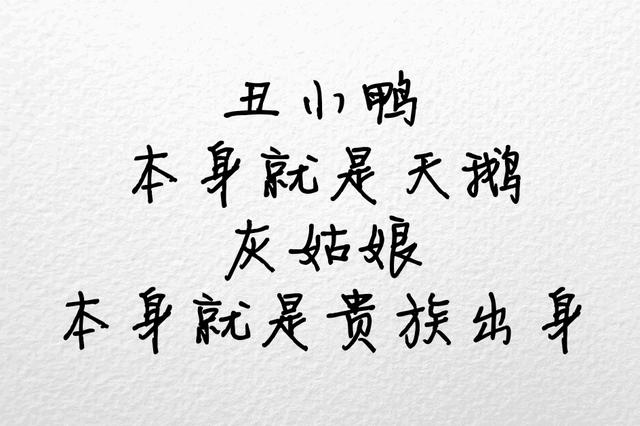 丑小鸭
本身就是天鹅
灰姑娘
本身就是贵族出身